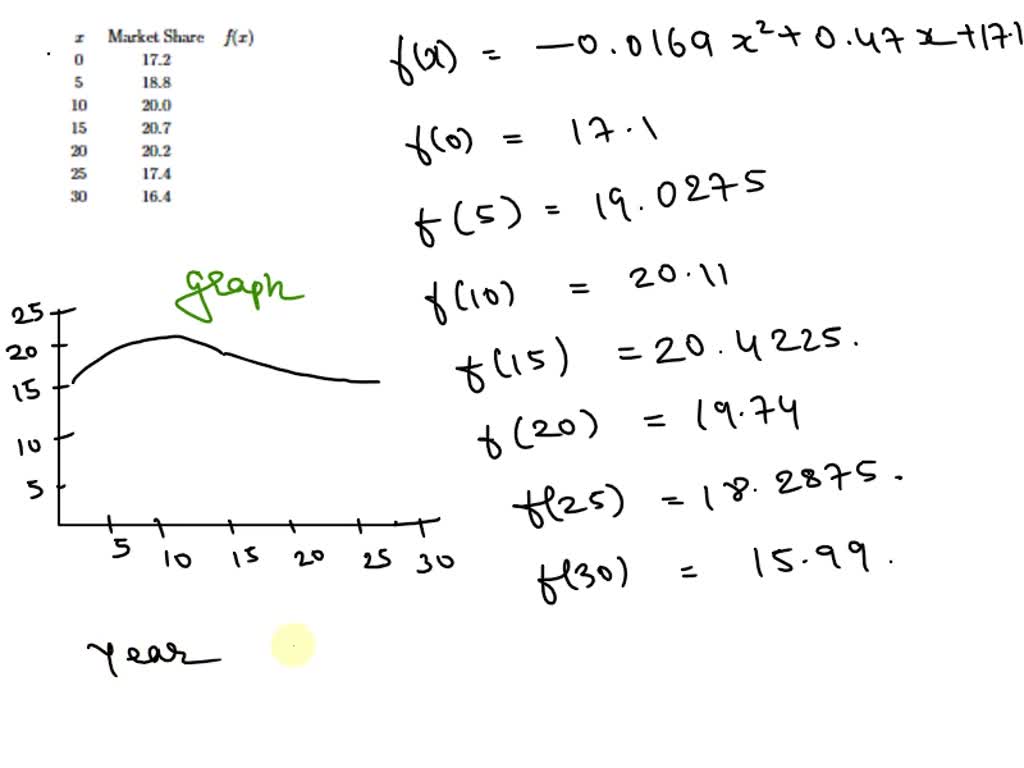 x Market Share f(x)
0 17.2
5 18.8
10 20.0
15 20.7
20 20.2
25 17.4
30 16.4
f(x) = -0.0169 x² + 0.47 x + 17.1
f(0) = 17.1
f(5) = 19.0275
f(10) = 20.11
f(15) = 20.4225.
f(20) = 19.74
f(25) = 18.2875.
f(30) = 15.99.
graph
25
20
15
10
5
5 10 15 20 25 30
Year